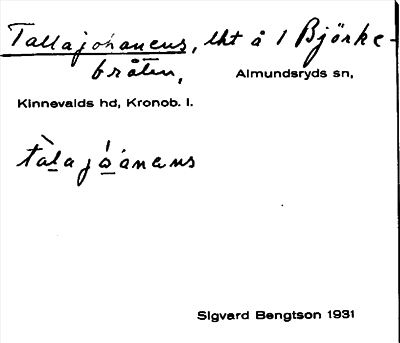 Tallajohanens, lht å 1 Björke-
bråten, Almundsryds sn,
Kinnevalds hd, Kronob. l.
tàlajóànens
Sigvard Bengtson 1931